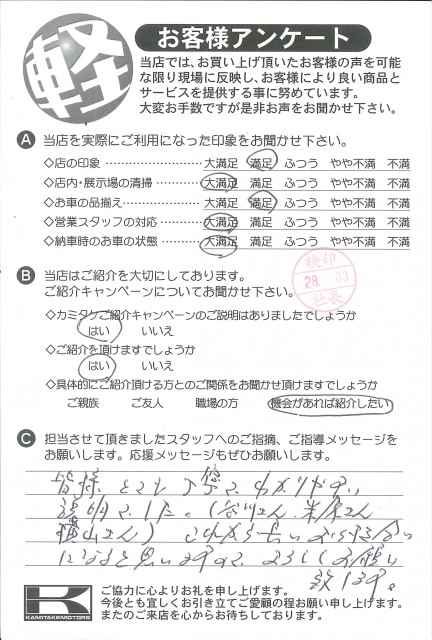 軽
お客様アンケート
当店では、お買い上げ頂いたお客様の声を可能
な限り現場に反映し、お客様により良い商品と
サービスを提供する事に努めています。
大変お手数ですが是非お声をお聞かせ下さい。
A 当店を実際にご利用になった印象をお聞かせ下さい。
◇店の印象 ………………… 大満足 満足 ふつう やや不満 不満
◇店内・展示場の清掃 ……… 大満足 満足 ふつう やや不満 不満
◇お車の品揃え ……………… 大満足 満足 ふつう やや不満 不満
◇営業スタッフの対応 ……… 大満足 満足 ふつう やや不満 不満
◇納車時のお車の状態 ……… 大満足 満足 ふつう やや不満 不満
B 当店はご紹介を大切にしております。
ご紹介キャンペーンについてお聞かせ下さい。
検印
28 03
社長
◇カミタケご紹介キャンペーンのご説明はありましたでしょうか
はい いいえ
◇ご紹介を頂けますでしょうか
はい いいえ
◇具体的にご紹介頂ける方とのご関係をお聞かせ頂けますでしょうか
ご親族 ご友人 職場の方 機会があれば紹介したい
C 担当させて頂きましたスタッフへのご指摘、ご指導メッセージを
お願いします。応援メッセージもぜひお願いします。
皆様 とても丁寧で わかりやすい
説明でした。
これから長い
になると思いますので、よろしくお願い
致します。
K
KAMITAKEMOTORS
ご協力に心よりお礼を申し上げます。
今後とも宜しくお引き立てご愛顧の程お願い申し上げます。
またのご来店を心からお待ちしております。